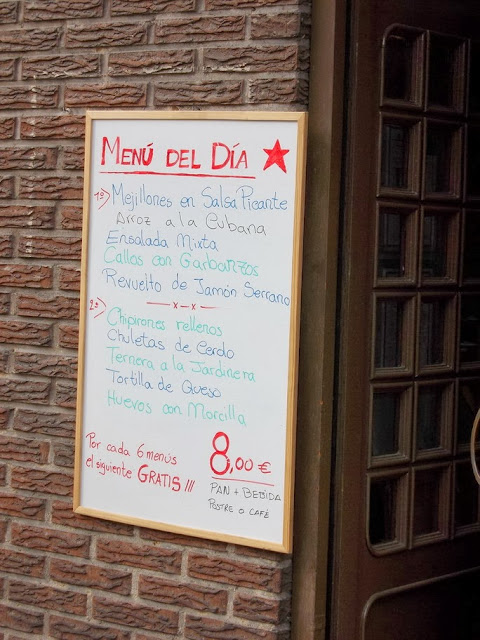 MENÚ DEL DÍA
1º) Mejillones en Salsa Picante
Arroz a la Cubana
Ensalada Mixta
Callos con Garbanzos
Revuelto de Jamón Serrano
—x—x—
2º) Chipirones rellenos
Chuletas de Cerdo
Ternera a la Jardinera
Tortilla de Queso
Huevos con Morcilla
Por cada 6 menús
el siguiente GRATIS!!!
8,00 €
PAN + BEBIDA
POSTRE O CAFÉ